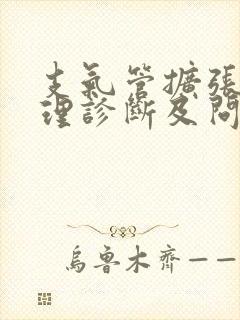 支氣管擴張
理診斷及問
烏魯木齊——